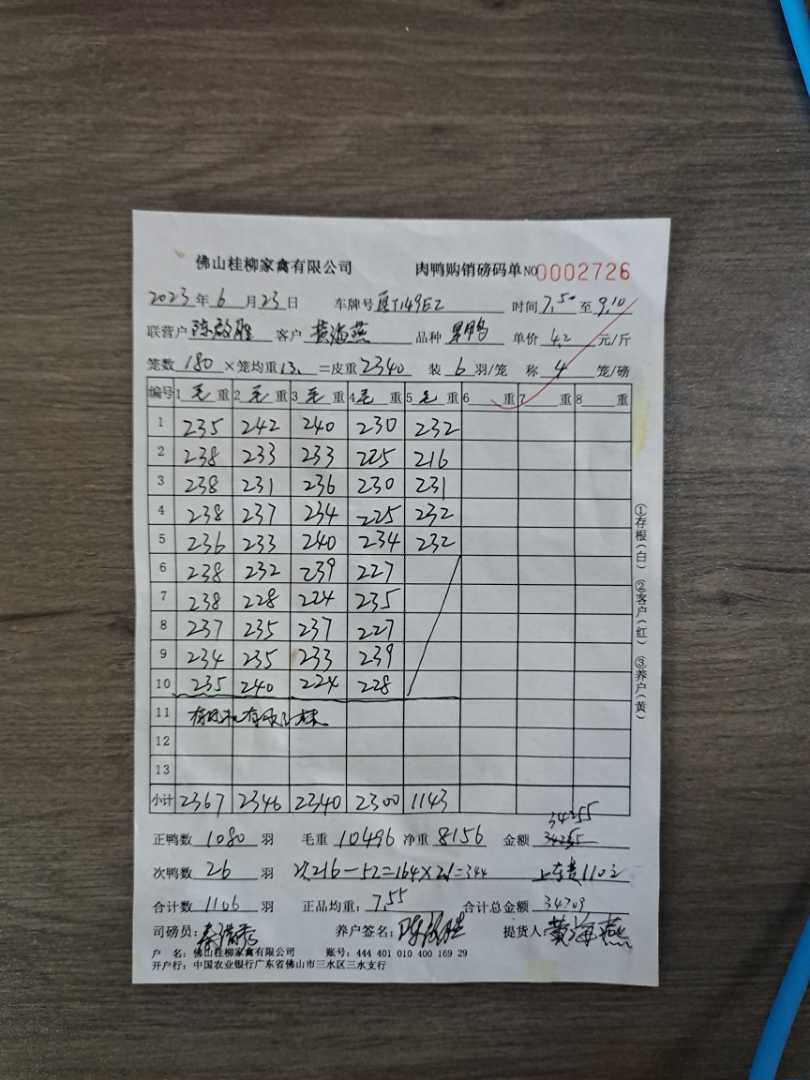 佛山桂柳家禽有限公司 肉鸭购销磅码单 NO 0002726
2023 年 6 月 23 日 车牌号 T149EZ 时间 7,50 至 9,10
联营户 陈啟胜 客户 黄海燕 品种 鸭 单价 4,2 元/斤
笼数 180 ×笼均重 13. =皮重 2340 装 6 羽/笼 称 4 笼/磅
编号 1 毛 重 2 毛 重 3 毛 重 4 毛 重 5 毛 重 6 重 7 重 8 重
1 235 242 240 230 232
2 238 233 233 225 216
3 238 231 236 230 231
4 238 237 234 225 232
5 236 233 240 234 232
6 238 232 239 227
7 238 228 224 235
8 237 235 237 227
9 234 235 233 239
10 235 240 224 228
11
12
13
小计 2367 2346 2340 2300 1143
34255
正鸭数 1080 羽 毛重 10496 净重 8156 金额 34255
次鸭数 26 羽 216-52=164×2.1=344 上车费110元
合计数 1106 羽 正品均重: 7,55 合计总金额 34709
司磅员: 养户签名: 陈啟胜 提货人: 黄海燕
户 名: 佛山桂柳家禽有限公司 账号: 444 401 010 400 169 29
开户行: 中国农业银行广东省佛山市三水区三水支行
①存根(白) ②客户(红) ③养户(黄)